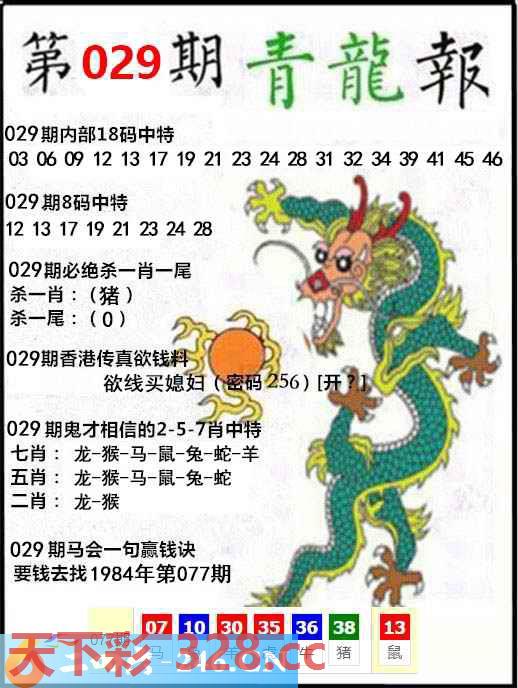 第029期青龍報
029期内部18码中特
03 06 09 12 13 17 19 21 23 24 28 31 32 34 39 41 45 46
029期8码中特
12 13 17 19 21 23 24 28
029期必绝杀一肖一尾
杀一肖：（猪）
杀一尾：（0）
029期香港传真欲钱料
欲线买媳妇（密码256）[开？]
029期鬼才相信的2-5-7肖中特
七肖：龙-猴-马-鼠-兔-蛇-羊
五肖：龙-猴-马-鼠-兔-蛇
二肖：龙-猴
029期马会一句赢钱诀
要钱去找1984年第077期
07 10 30 35 36 38 13
马 羊 虎 牛 猪 鼠
天下彩-328.cc